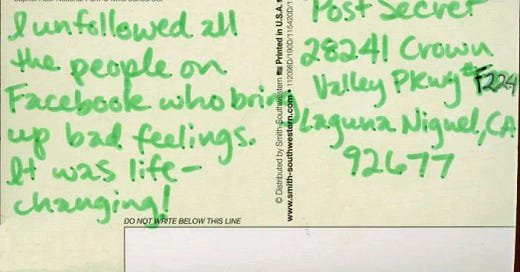 I unfollowed all
the people on
Facebook who bring
up bad feelings.
It was life-
changing!
DO NOT WRITE BELOW THIS LINE
© Distributed by Smith-Southwestern
Printed in U.S.A.
www.smith-southwestern.com
Post Secret
28241 Crown
Valley Pkwy #F224
Laguna Niguel, CA
92677